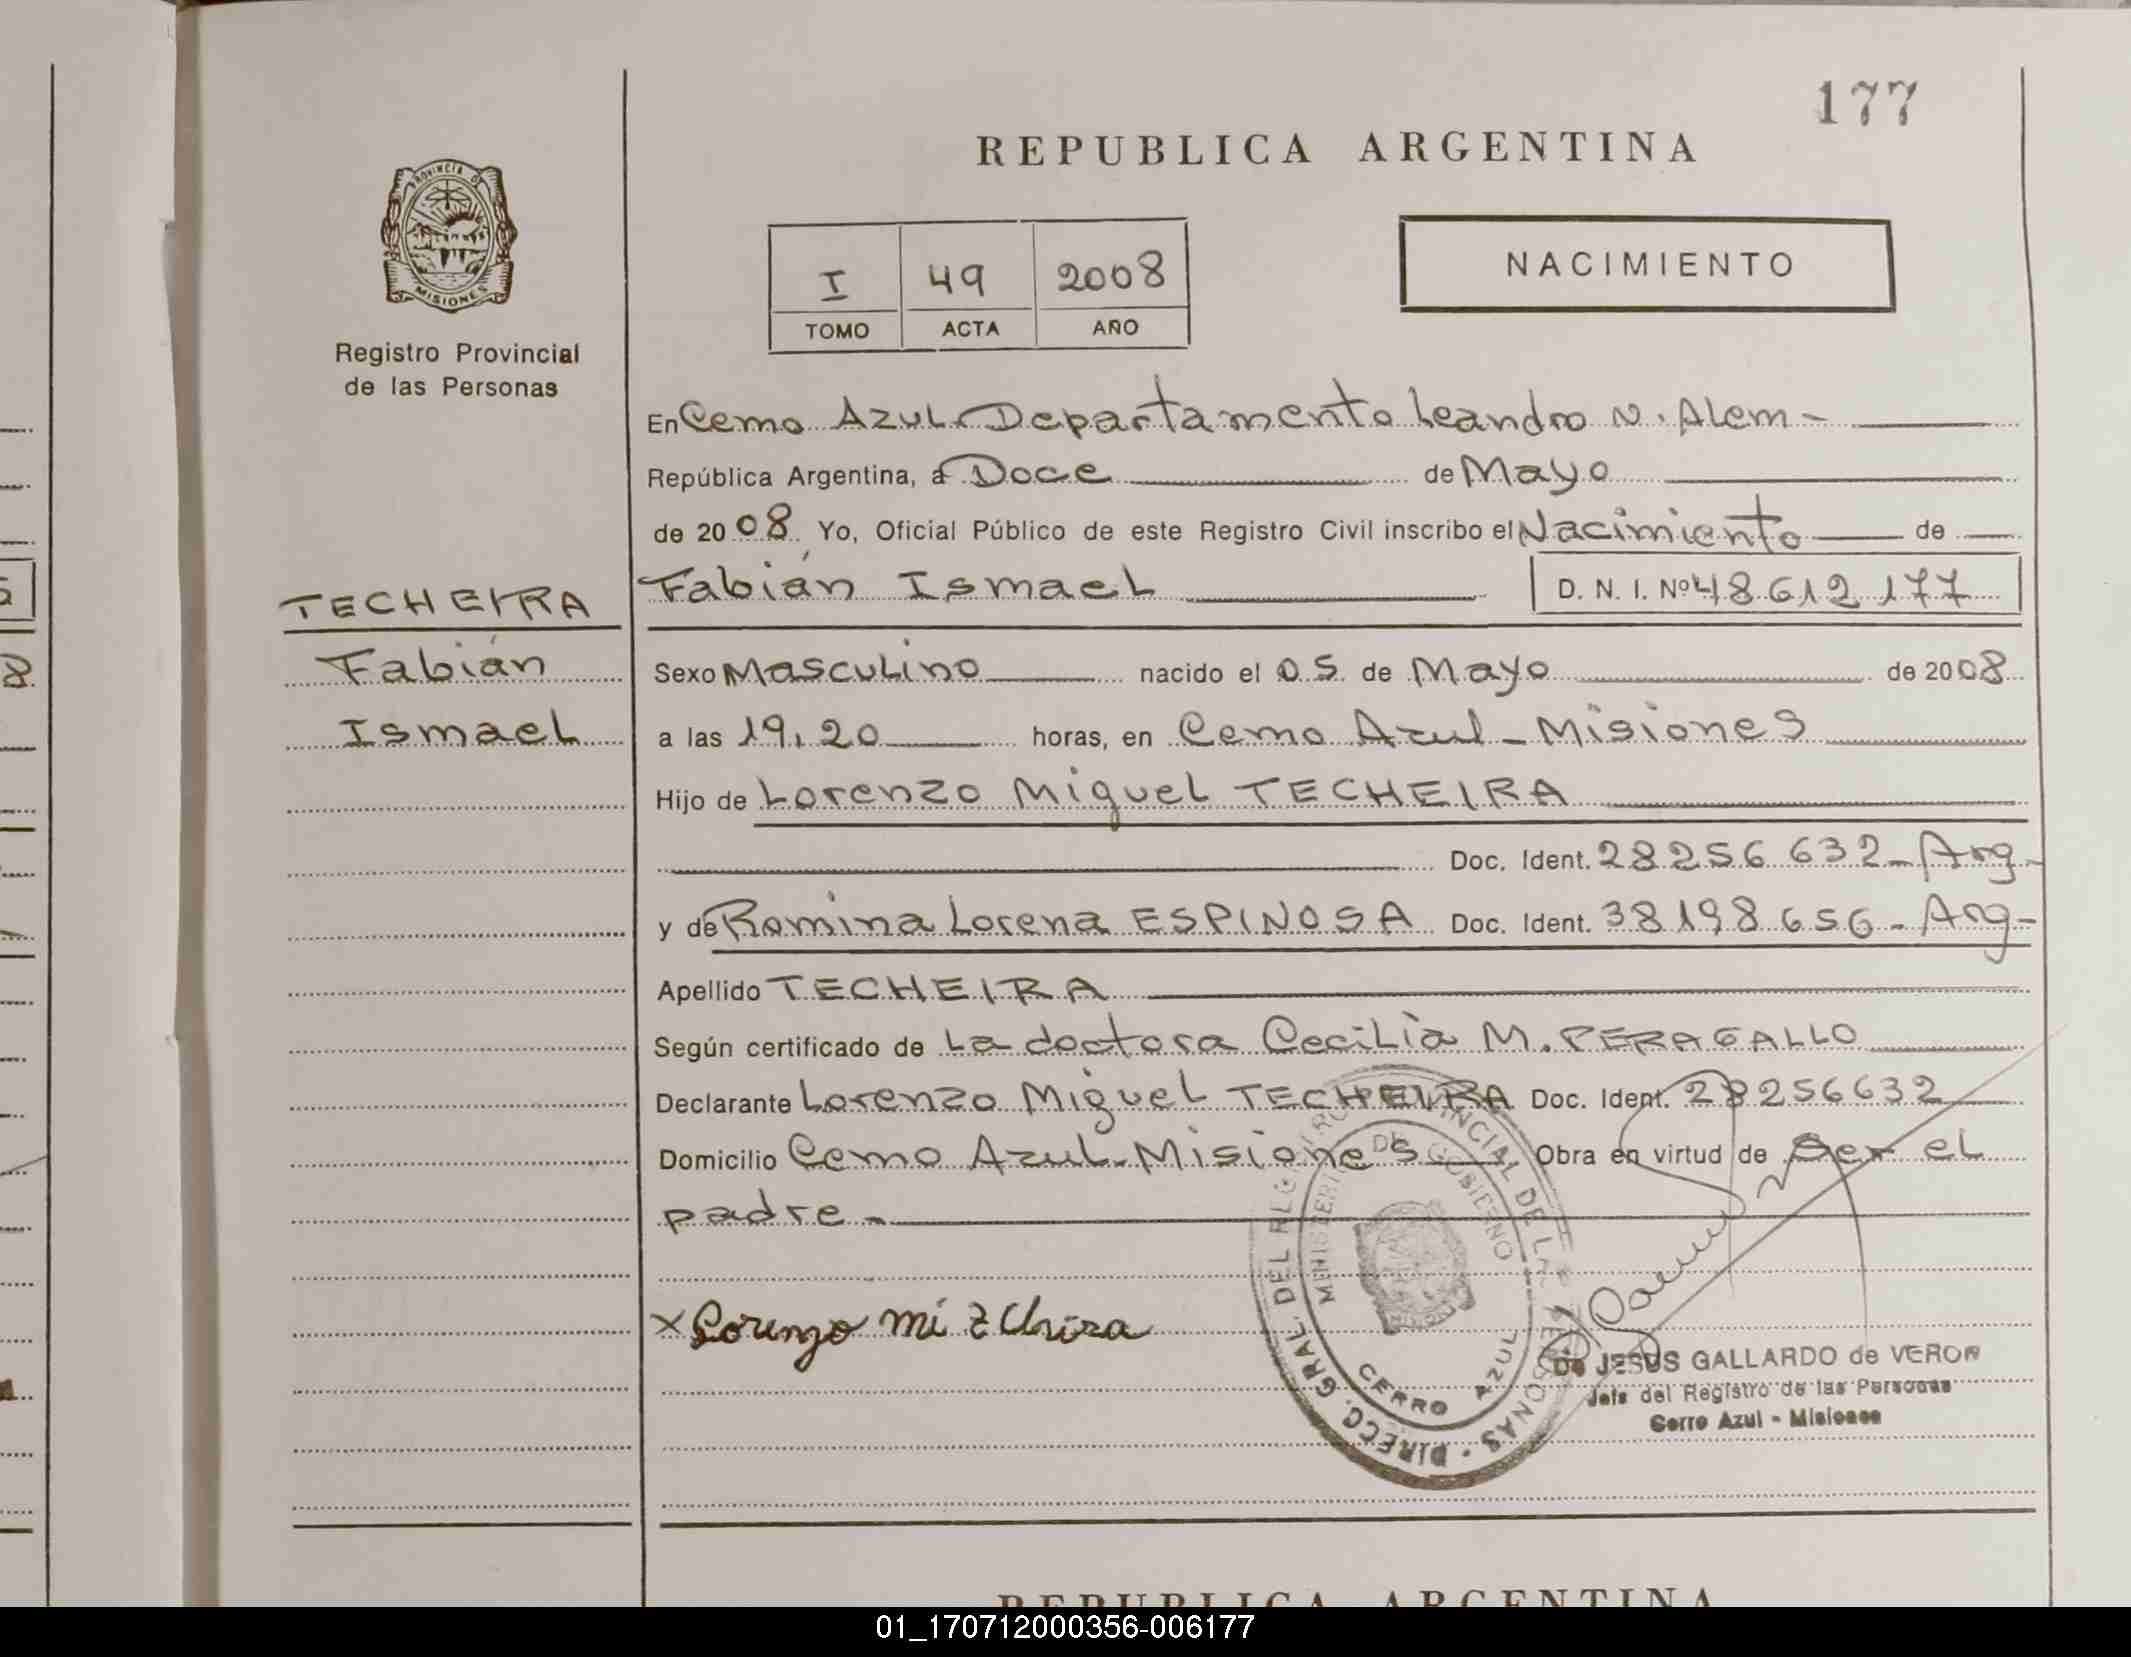 177
REPUBLICA ARGENTINA
PROVINCIA DE
MISIONES
Registro Provincial
de las Personas
I 49 2008
TOMO ACTA AÑO
NACIMIENTO
En Cerro Azul Departamento Leandro N. Alem -
República Argentina, a Doce de Mayo
de 2008 Yo, Oficial Público de este Registro Civil inscribo el Nacimiento de
Fabián Ismael D. N. I. Nº 48.612.177
TECHEIRA
Fabián
Ismael
Sexo Masculino nacido el 05 de Mayo de 2008
a las 19,20 horas, en Cerro Azul - Misiones
Hijo de Lorenzo Miguel TECHEIRA
Doc. Ident. 28256 632 - Arg -
y de Romina Lorena ESPINOSA Doc. Ident. 38198656 - Arg -
Apellido TECHEIRA
Según certificado de La doctora Cecilia M. PERAGALLO
Declarante Lorenzo Miguel TECHEIRA Doc. Ident. 28256632
Domicilio Cerro Azul - Misiones Obra en virtud de Ser el
padre -
x Lorenzo mi
DIRECC. GRAL. DEL REG. PROVINCIAL DE LAS PERSONAS
MINISTERIO DE GOBIERNO
CERRO AZUL
De JESUS GALLARDO de VERON
Jefe del Registro de las Personas
Cerro Azul - Misiones
REPUBLICA ARGENTINA
01_170712000356-006177